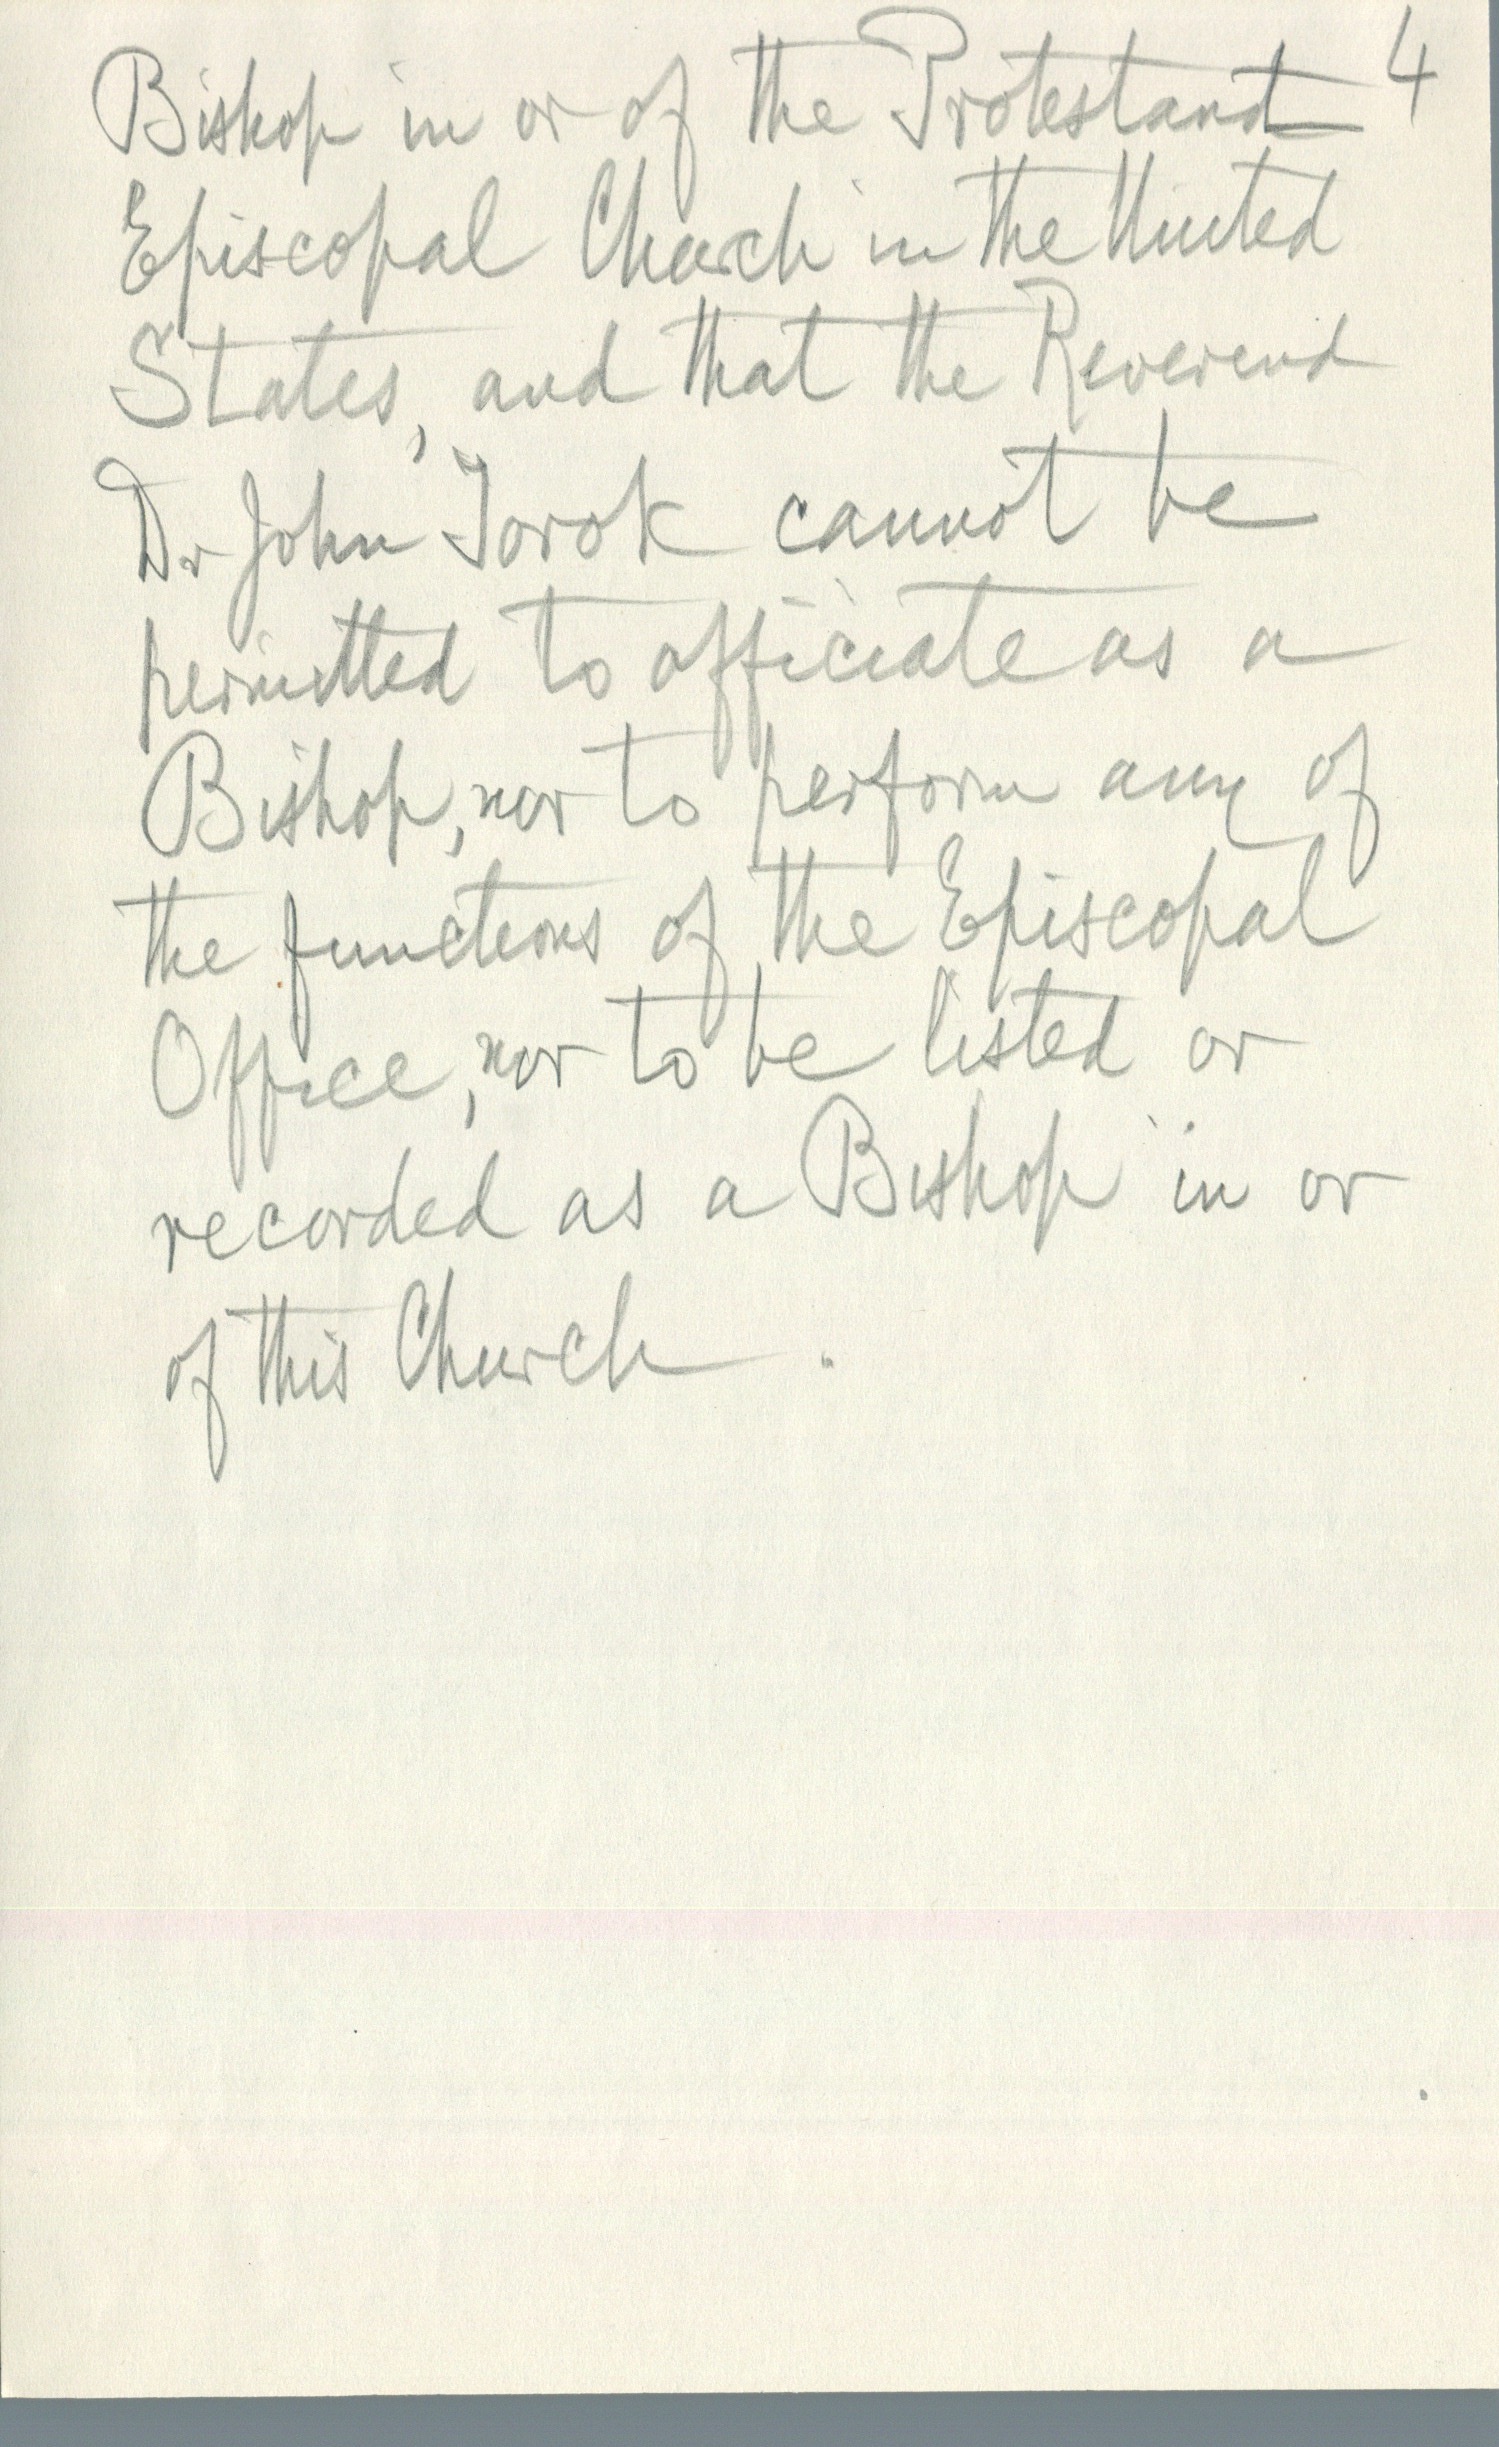 4
Bishop in or of the Protestant
Episcopal Church in the United
States, and that the Reverend
Dr John Torok cannot be
permitted to officiate as a
Bishop, nor to perform any of
the functions of the Episcopal
Office, nor to be listed or
recorded as a Bishop in or
of this Church.